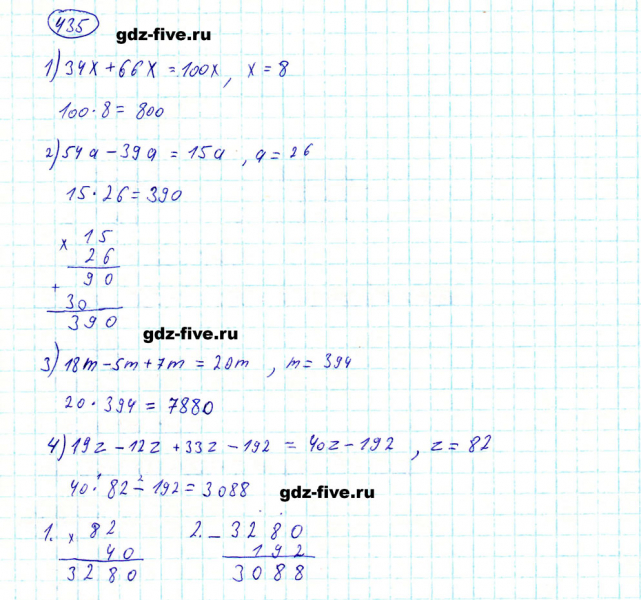 435
gdz-five.ru
1) 34x + 66x = 100x, x = 8
100 · 8 = 800
2) 54a - 39a = 15a, a = 26
15 · 26 = 390
x 15
26
+ 90
30
390
gdz-five.ru
3) 18m - 5m + 7m = 20m, m = 394
20 · 394 = 7880
4) 19z - 12z + 33z - 192 = 40z - 192, z = 82
40 ·¹ 82 -² 192 = 3088
gdz-five.ru
1. x 82 2. - 3280
40 192
3280 3088